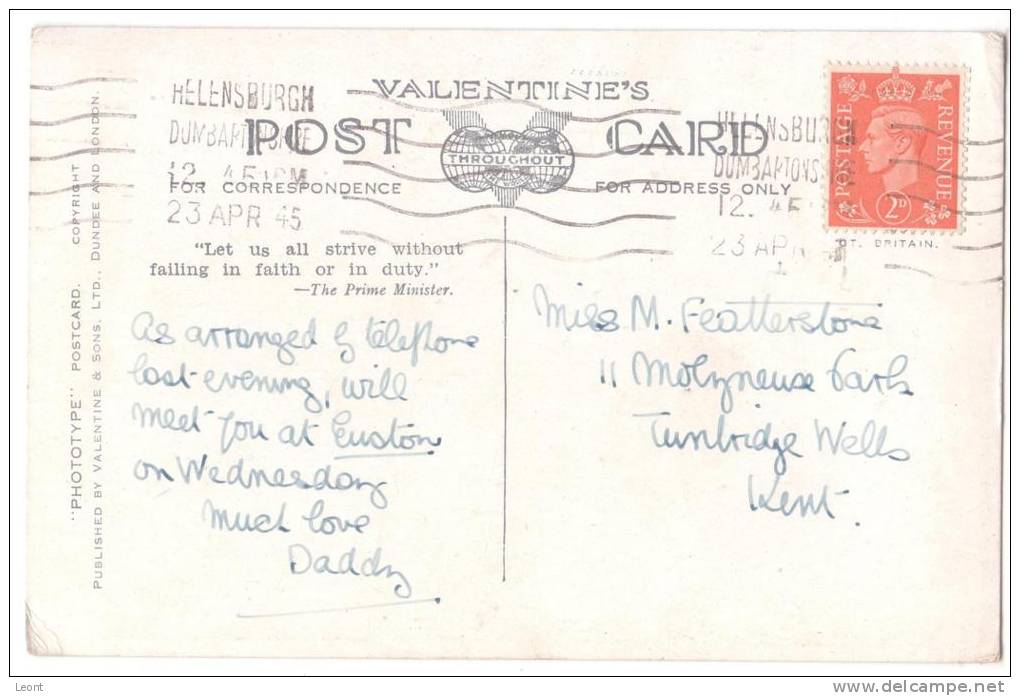 HELENSBURGH
12. 45 PM
23 APR 45
VALENTINE'S
POST CARD
THROUGHOUT
FOR CORRESPONDENCE
FOR ADDRESS ONLY
HELENSBURGH
DUMBARTONS
12. 45
23 APR
POSTAGE REVENUE
2D
GT. BRITAIN.
"Let us all strive without
failing in faith or in duty."
—The Prime Minister.
As arranged by telephone
last evening, will
meet you at Euston
on Wednesday
Much love
Daddy
Miss M. Featherstone
11 Molyneux Park
Tunbridge Wells
Kent.
"PHOTOTYPE" POSTCARD. COPYRIGHT
PUBLISHED BY VALENTINE & SONS, LTD., DUNDEE AND LONDON.
Leont
www.delcampe.net